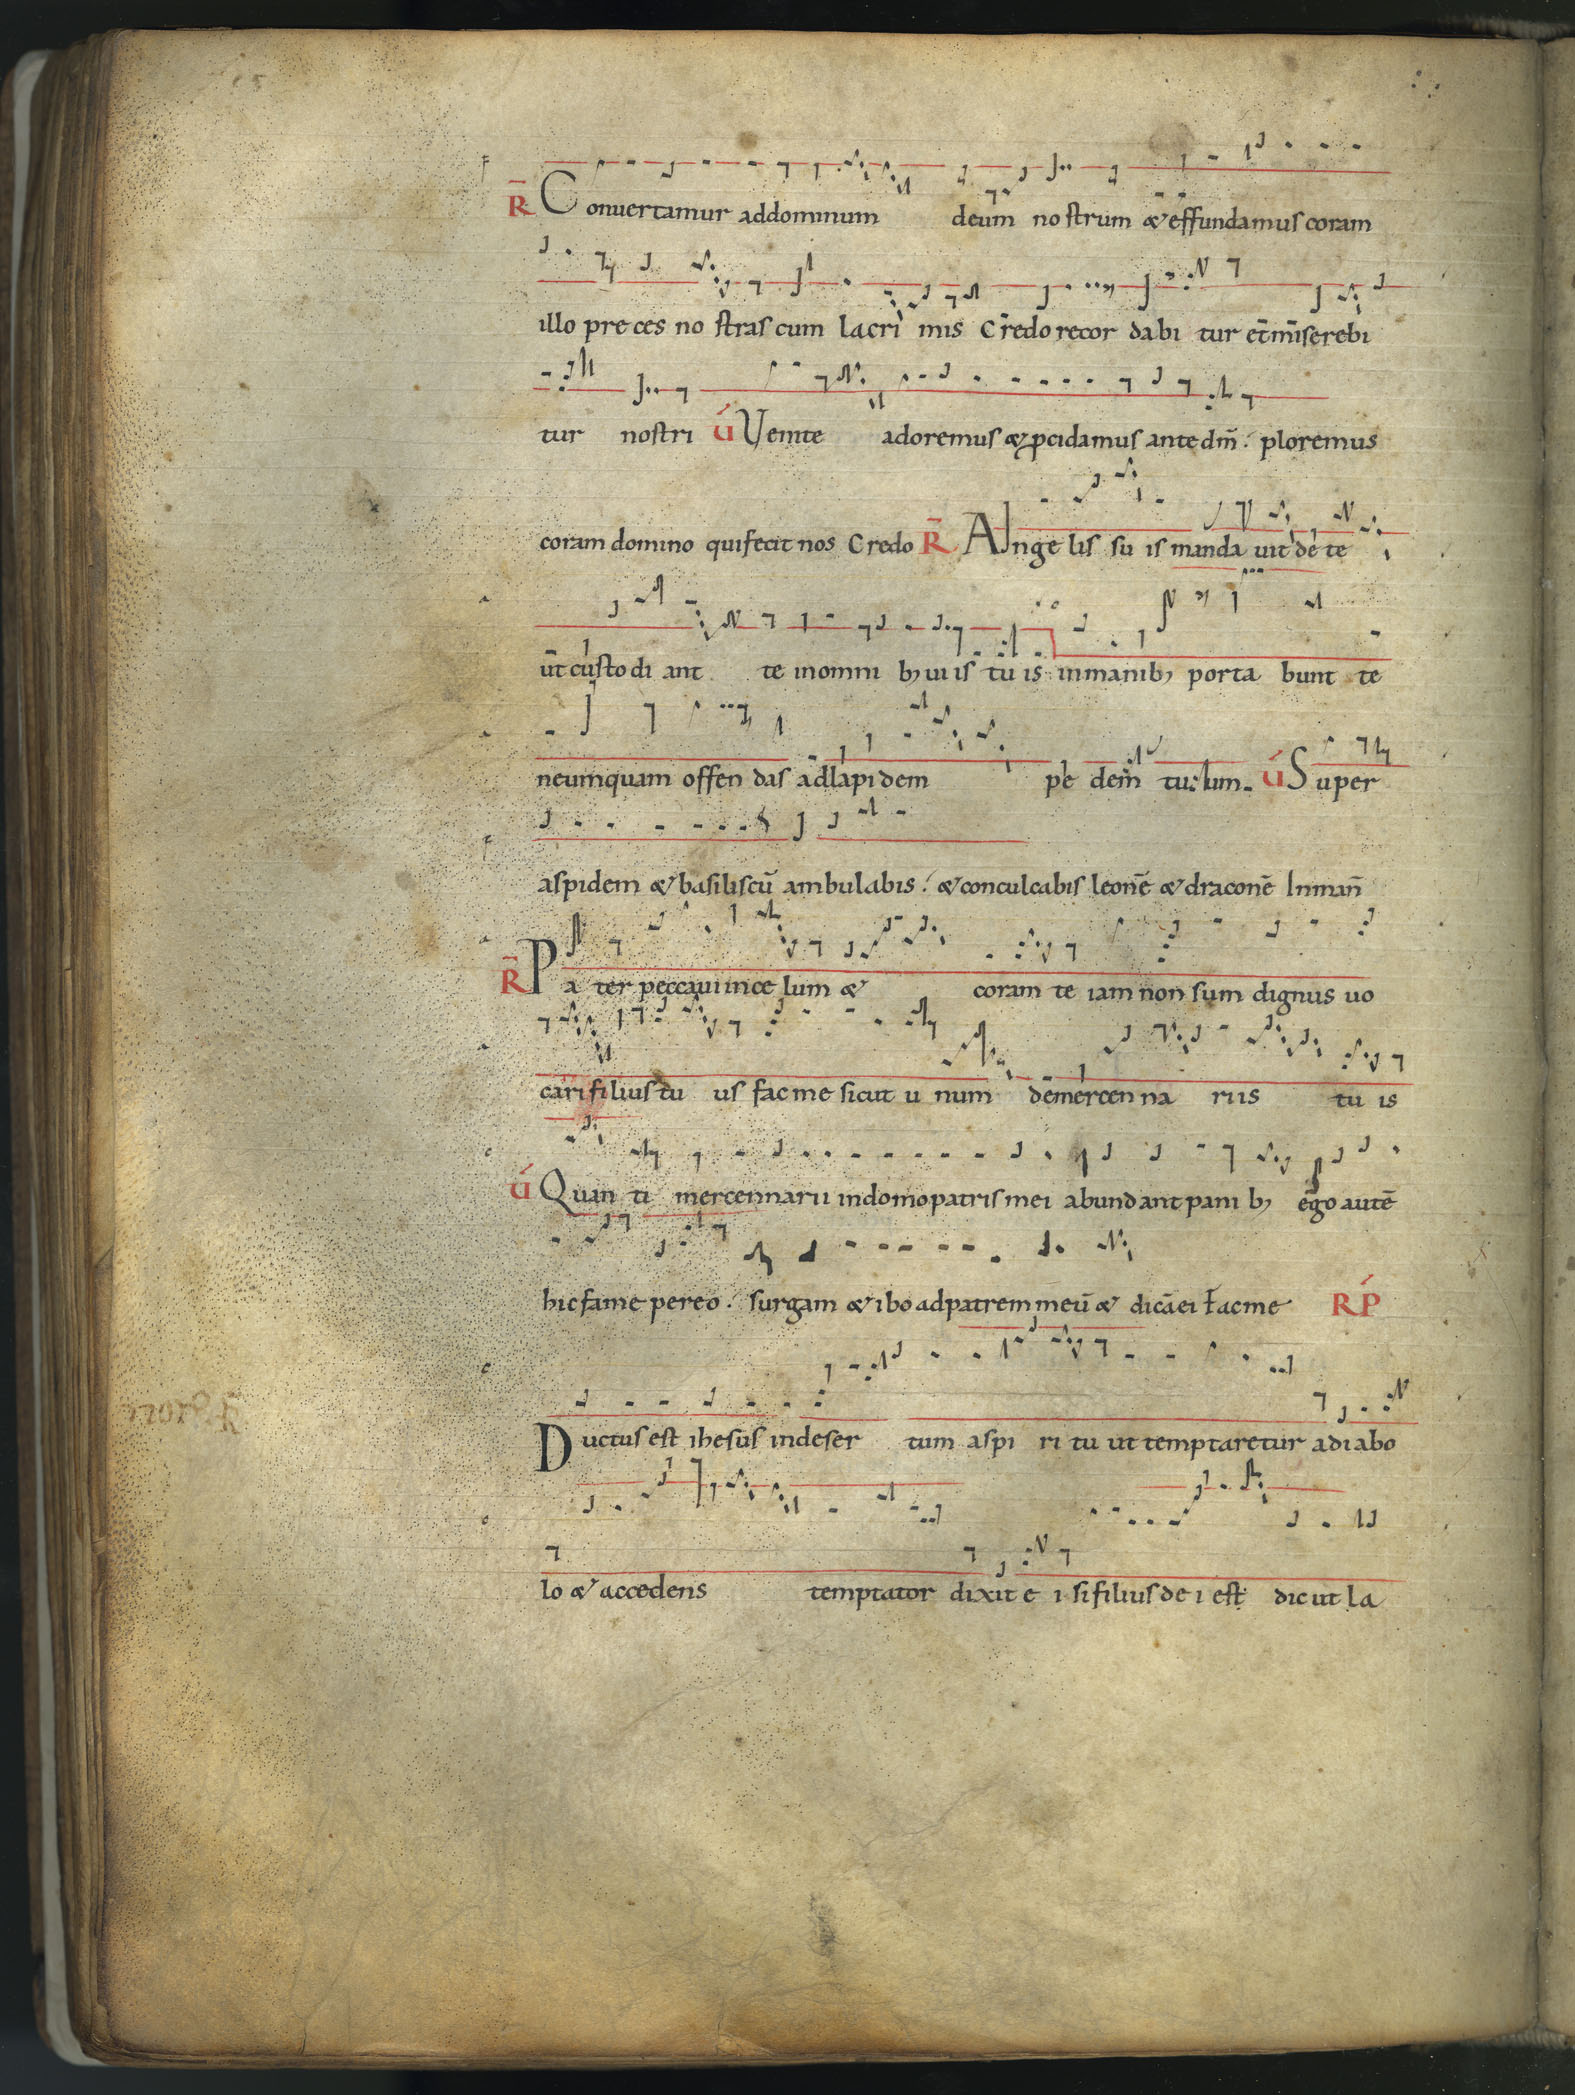 R̄ Conuertamur addominum deum nostrum & effundamus coram
illo preces nostras cum lacri mis Credo recor dabi tur et̄ mīserebi
tur nostri V́ Uenite adoremus & pcidamus ante dm̄. ploremus
coram domino qui fecit nos Credo R̄ Ange lis su is manda uit de te
ut̄ custo di ant te inomni b; uiis tu is inmanib; porta bunt te
neumquam offen das adlapi dem pe dem̄ tu: lum. V́ Super
aspidem & basiliscū ambulabis. & conculcabis leonē & draconē Inman̄
R̄ Pa ter peccaui ince lum & coram te iam non sum dignus uo
cari filius tu us fac me sicut u num de mercen na riis tu is
V́ Quan ti mercennarii indomo patris mei abundant pani b; ego autē
hic fame pereo. surgam & ibo ad patrem meū & dicā ei Fac me RP
Ductus est ihesus indeser tum aspi ri tu ut temptaretur adiabo
lo & accedens temptator dixit e i si filius de i est dic ut la